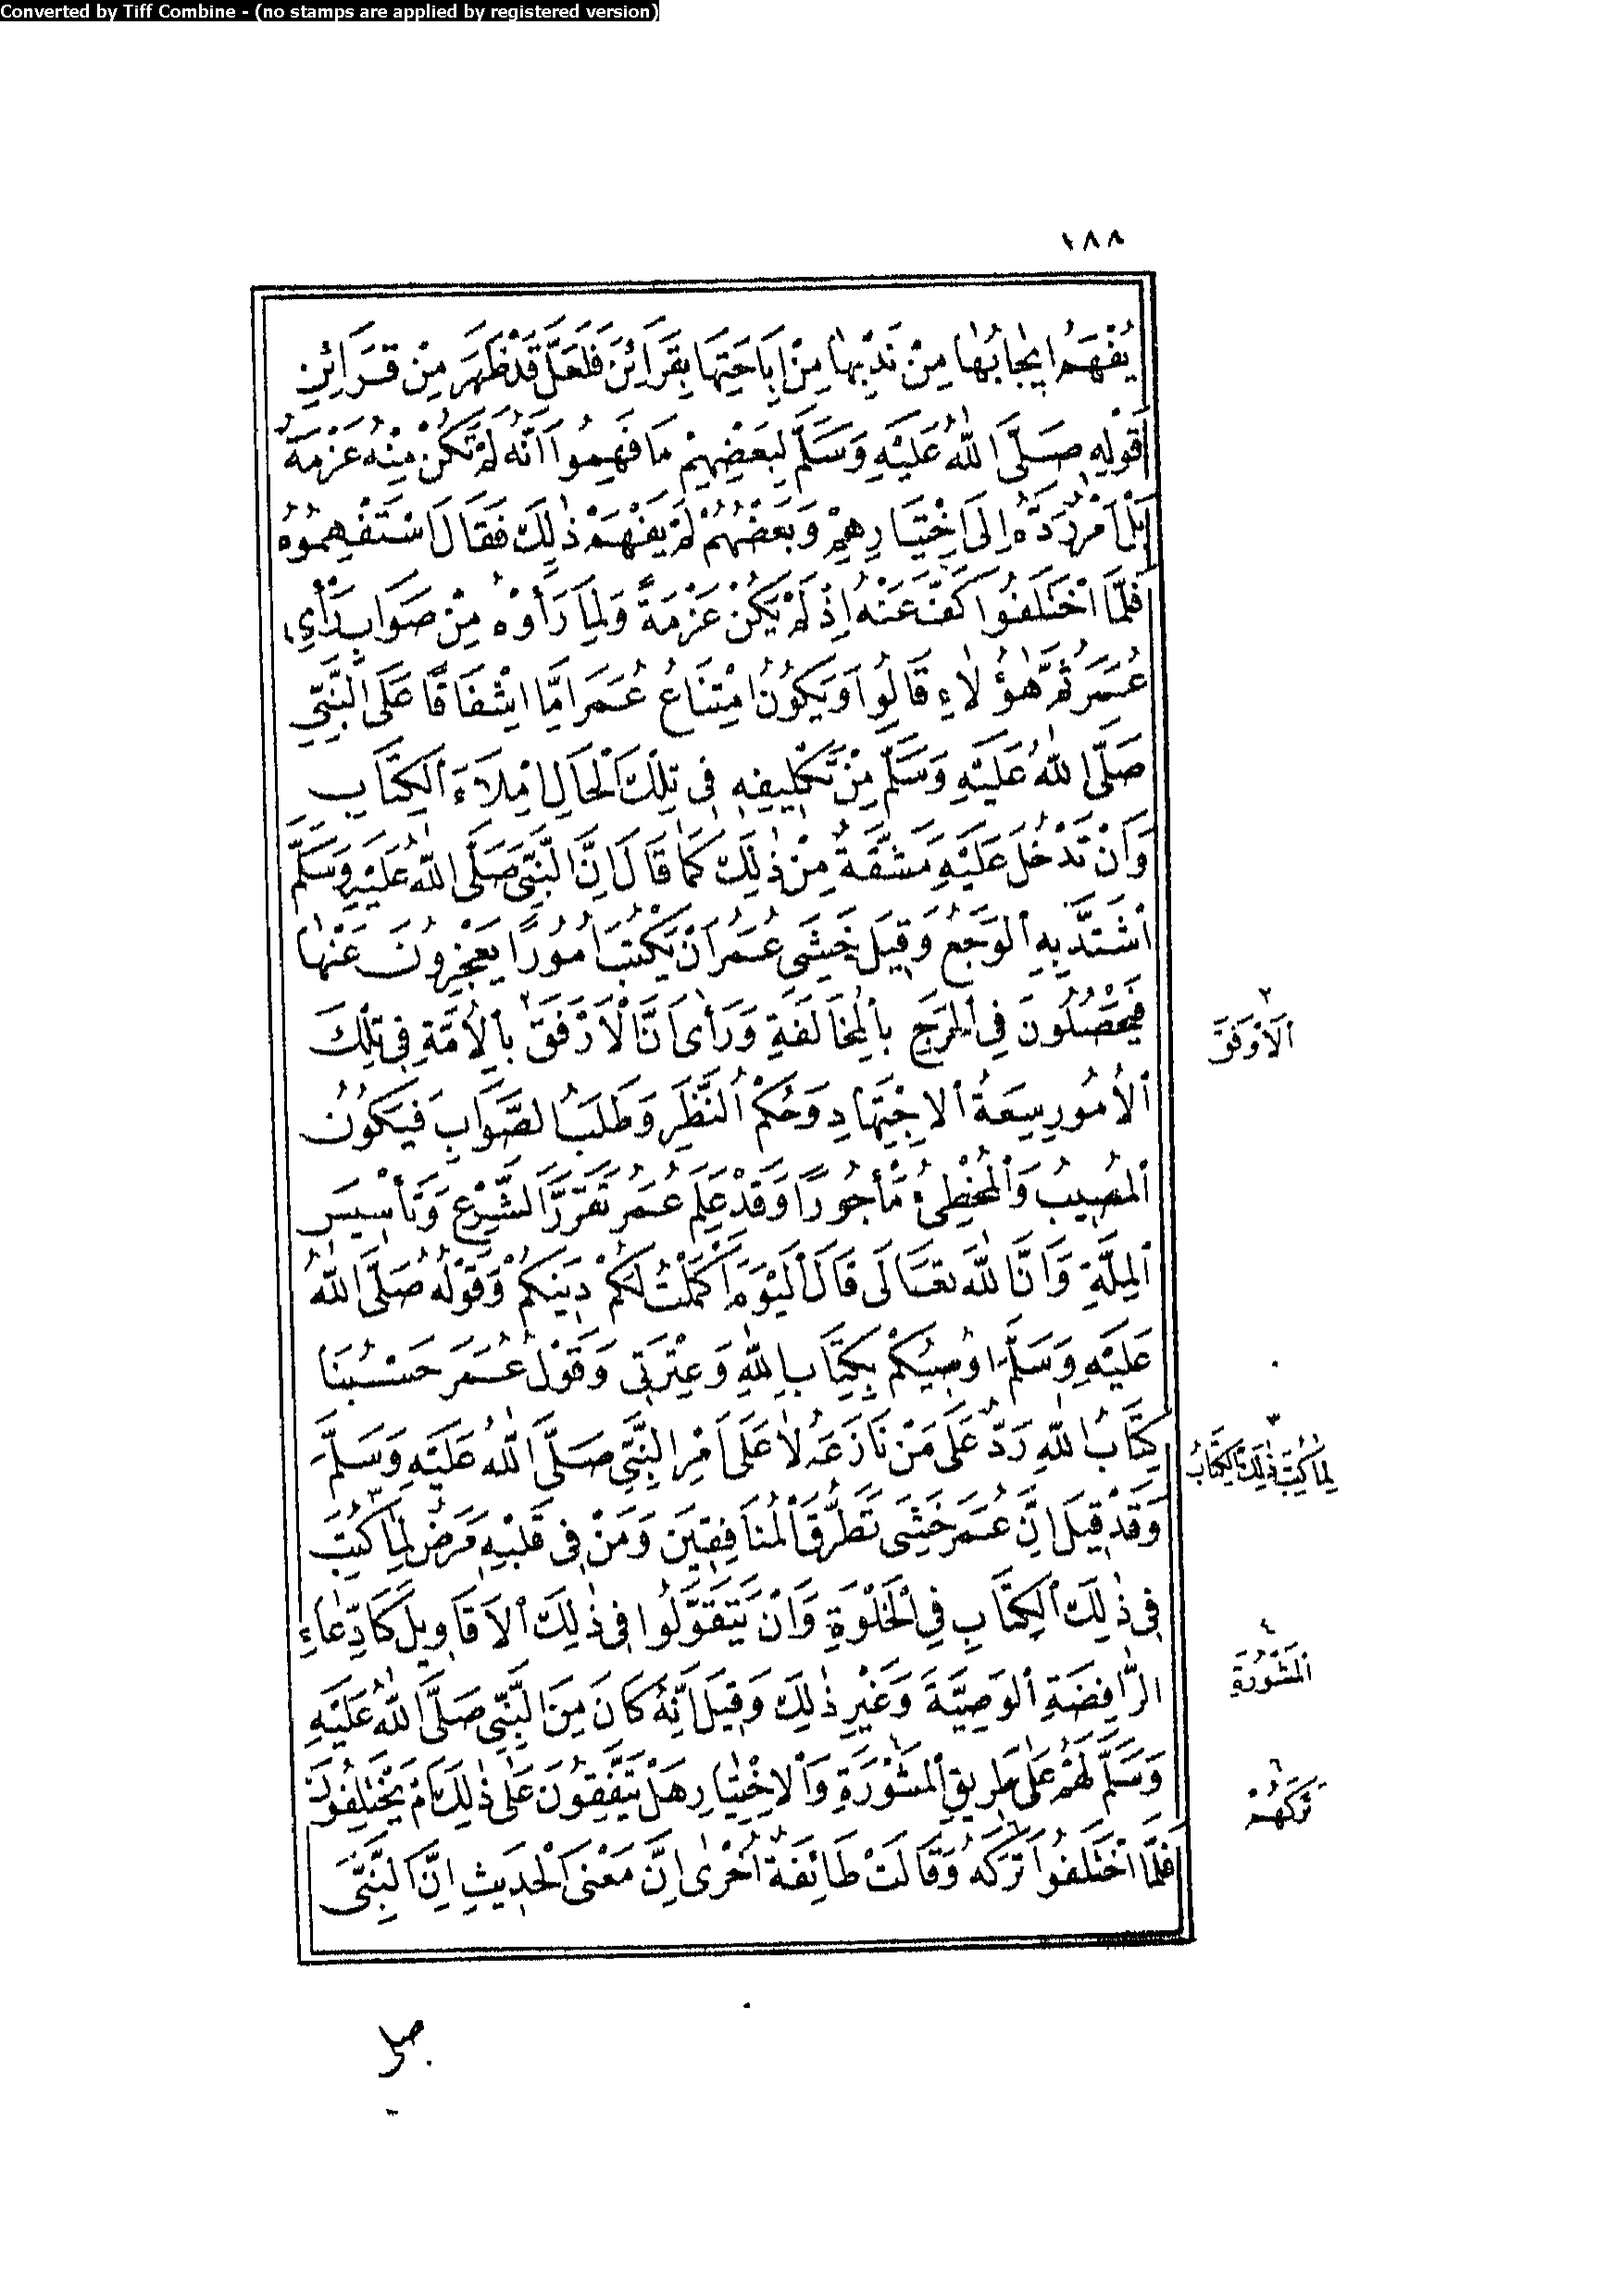 Converted by Tiff Combine - (no stamps are applied by registered version)
١٨٨
يُفْهَمُ اِيجَابُهَا مِنْ نَدْبِهَا مِنْ اِبَاحَتِهَا بِقَرَائِنَ فَلَعَلَّ قَدْ ظَهَرَ مِنْ قَرَائِنِ
قَوْلِهِ صَلَّى اللّٰهُ عَلَيْهِ وَسَلَّمَ لِبَعْضِهِمْ مَا فَهِمُوا اَنَّهُ لَمْ تَكُنْ مِنْهُ عَزْمَةٌ
بَلْ اَمْرٌ رَدَّهُ اِلَى اخْتِيَارِهِمْ وَبَعْضُهُمْ لَمْ يَفْهَمْ ذٰلِكَ فَقَالَ اسْتَفْهِمُوهُ
فَلَمَّا اخْتَلَفُوا كَفَّ عَنْهُ اِذْ لَمْ يَكُنْ عَزْمَةً وَلِمَا رَأَوْهُ مِنْ صَوَابِ رَأْيِ
عُمَرَ ثُمَّ هٰؤُلَاءِ قَالُوا وَيَكُونُ امْتِنَاعُ عُمَرَ اِمَّا اِشْفَاقًا عَلَى النَّبِيِّ
صَلَّى اللّٰهُ عَلَيْهِ وَسَلَّمَ مِنْ تَكْلِيفِهِ فِى تِلْكَ الْحَالِ اِمْلَاءَ الْكِتَابِ
وَاَنْ تَدْخُلَ عَلَيْهِ مَشَقَّةٌ مِنْ ذٰلِكَ كَمَا قَالَ اِنَّ النَّبِىَّ صَلَّى اللّٰهُ عَلَيْهِ وَسَلَّمَ
اشْتَدَّ بِهِ الْوَجَعُ وَقِيلَ خَشِىَ عُمَرُ اَنْ يَكْتُبَ اُمُورًا يَعْجِزُونَ عَنْهَا
فَيَحْصُلُونَ فِى الْحَرَجِ بِالْمُخَالَفَةِ وَرَأَى اَنَّ الْاَرْفَقَ ٢ بِالْاُمَّةِ فِى تِلْكَ
الْاُمُورِ سِعَةُ الِاجْتِهَادِ وَحُكْمُ النَّظَرِ وَطَلَبُ الصَّوَابِ فَيَكُونُ
الْمُصِيبُ وَالْمُخْطِئُ مَأْجُورًا وَقَدْ عَلِمَ عُمَرُ تَقَرُّرَ الشَّرْعِ وَتَأْسِيسَ
الْمِلَّةِ وَاَنَّ اللّٰهَ تَعَالَى قَالَ اَلْيَوْمَ اَكْمَلْتُ لَكُمْ دِينَكُمْ وَقَوْلُهُ صَلَّى اللّٰهُ
عَلَيْهِ وَسَلَّمَ اُوصِيكُمْ بِكِتَابِ اللّٰهِ وَعِتْرَتِى وَقَوْلُ عُمَرَ حَسْبُنَا
كِتَابُ اللّٰهِ رَدٌّ عَلَى مَنْ نَازَعَهُ لَا عَلَى اَمْرِ النَّبِيِّ صَلَّى اللّٰهُ عَلَيْهِ وَسَلَّمَ
وَقَدْ قِيلَ اِنَّ عُمَرَ خَشِىَ تَطَرُّقَ الْمُنَافِقِينَ وَمَنْ فِى قَلْبِهِ مَرَضٌ لِمَا ٣ كُتِبَ
فِى ذٰلِكَ الْكِتَابِ فِى الْخَلْوَةِ وَاَنْ يَتَقَوَّلُوا فِى ذٰلِكَ الْاَقَاوِيلَ كَادِّعَاءِ
الرَّافِضَةِ الْوَصِيَّةَ وَغَيْرِ ذٰلِكَ وَقِيلَ اِنَّهُ كَانَ مِنَ النَّبِيِّ صَلَّى اللّٰهُ عَلَيْهِ
وَسَلَّمَ لَهُمْ عَلَى طَرِيقِ الْمَشْوَرَةِ وَالِاخْتِيَارِ هَلْ يَتَّفِقُونَ عَلَى ذٰلِكَ اَمْ يَخْتَلِفُونَ
فَلَمَّا اخْتَلَفُوا تَرَكَهُ ٦ وَقَالَتْ طَائِفَةٌ اُخْرٰى اِنَّ مَعْنَى الْحَدِيثِ اِنَّ النَّبِىَّ
٢
اَلْاَوْفَقَ
٣
لِمَا كُتِبَ ذٰلِكَ الْكِتَابُ
٤
الْمَشُورَةِ
٦
تَرَكَهُمْ
صلى